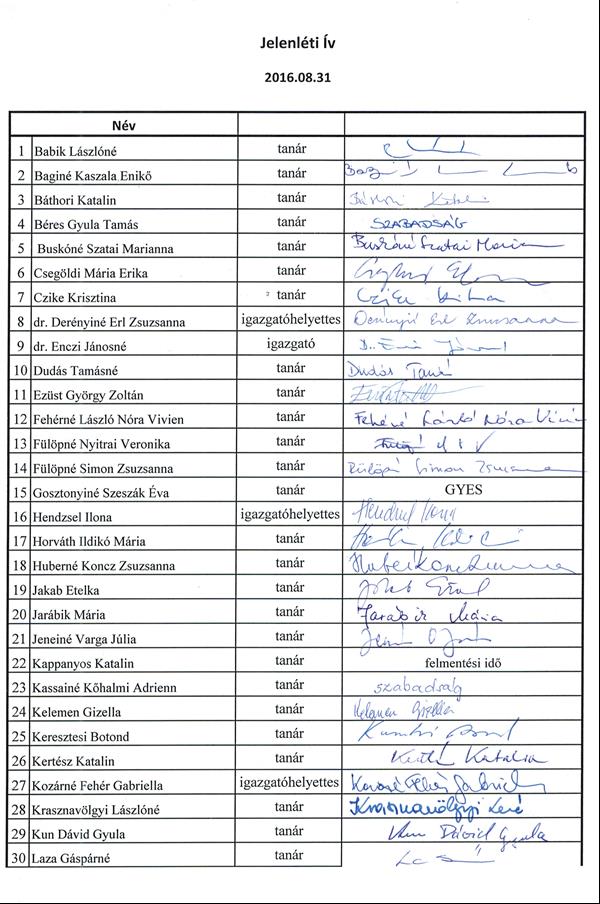 Jelenléti Ív
2016.08.31
Név
1 Babik Lászlóné tanár
2 Baginé Kaszala Enikő tanár
3 Báthori Katalin tanár
4 Béres Gyula Tamás tanár SZABADSÁG
5 Buskóné Szatai Marianna tanár Buskóné Szatai Marianna
6 Csegöldi Mária Erika tanár
7 Czike Krisztina tanár
8 dr. Derényiné Erl Zsuzsanna igazgatóhelyettes Derényiné Erl Zsuzsanna
9 dr. Enczi Jánosné igazgató
10 Dudás Tamásné tanár Dudás Tamásné
11 Ezüst György Zoltán tanár
12 Fehérné László Nóra Vivien tanár Fehérné László Nóra Vivien
13 Fülöpné Nyitrai Veronika tanár
14 Fülöpné Simon Zsuzsanna tanár Fülöpné Simon Zsuzsanna
15 Gosztonyiné Szeszák Éva tanár GYES
16 Hendzsel Ilona igazgatóhelyettes Hendzsel Ilona
17 Horváth Ildikó Mária tanár
18 Huberné Koncz Zsuzsanna tanár Huberné Koncz Zsuzsanna
19 Jakab Etelka tanár
20 Jarábik Mária tanár Jarábik Mária
21 Jeneiné Varga Júlia tanár
22 Kappanyos Katalin tanár felmentési idő
23 Kassainé Kőhalmi Adrienn tanár szabadság
24 Kelemen Gizella tanár Kelemen Gizella
25 Keresztesi Botond tanár
26 Kertész Katalin tanár Kertész Katalin
27 Kozárné Fehér Gabriella igazgatóhelyettes Kozárné Fehér Gabriella
28 Krasznavölgyi Lászlóné tanár Krasznavölgyi
29 Kun Dávid Gyula tanár Kun Dávid Gyula
30 Laza Gáspárné tanár